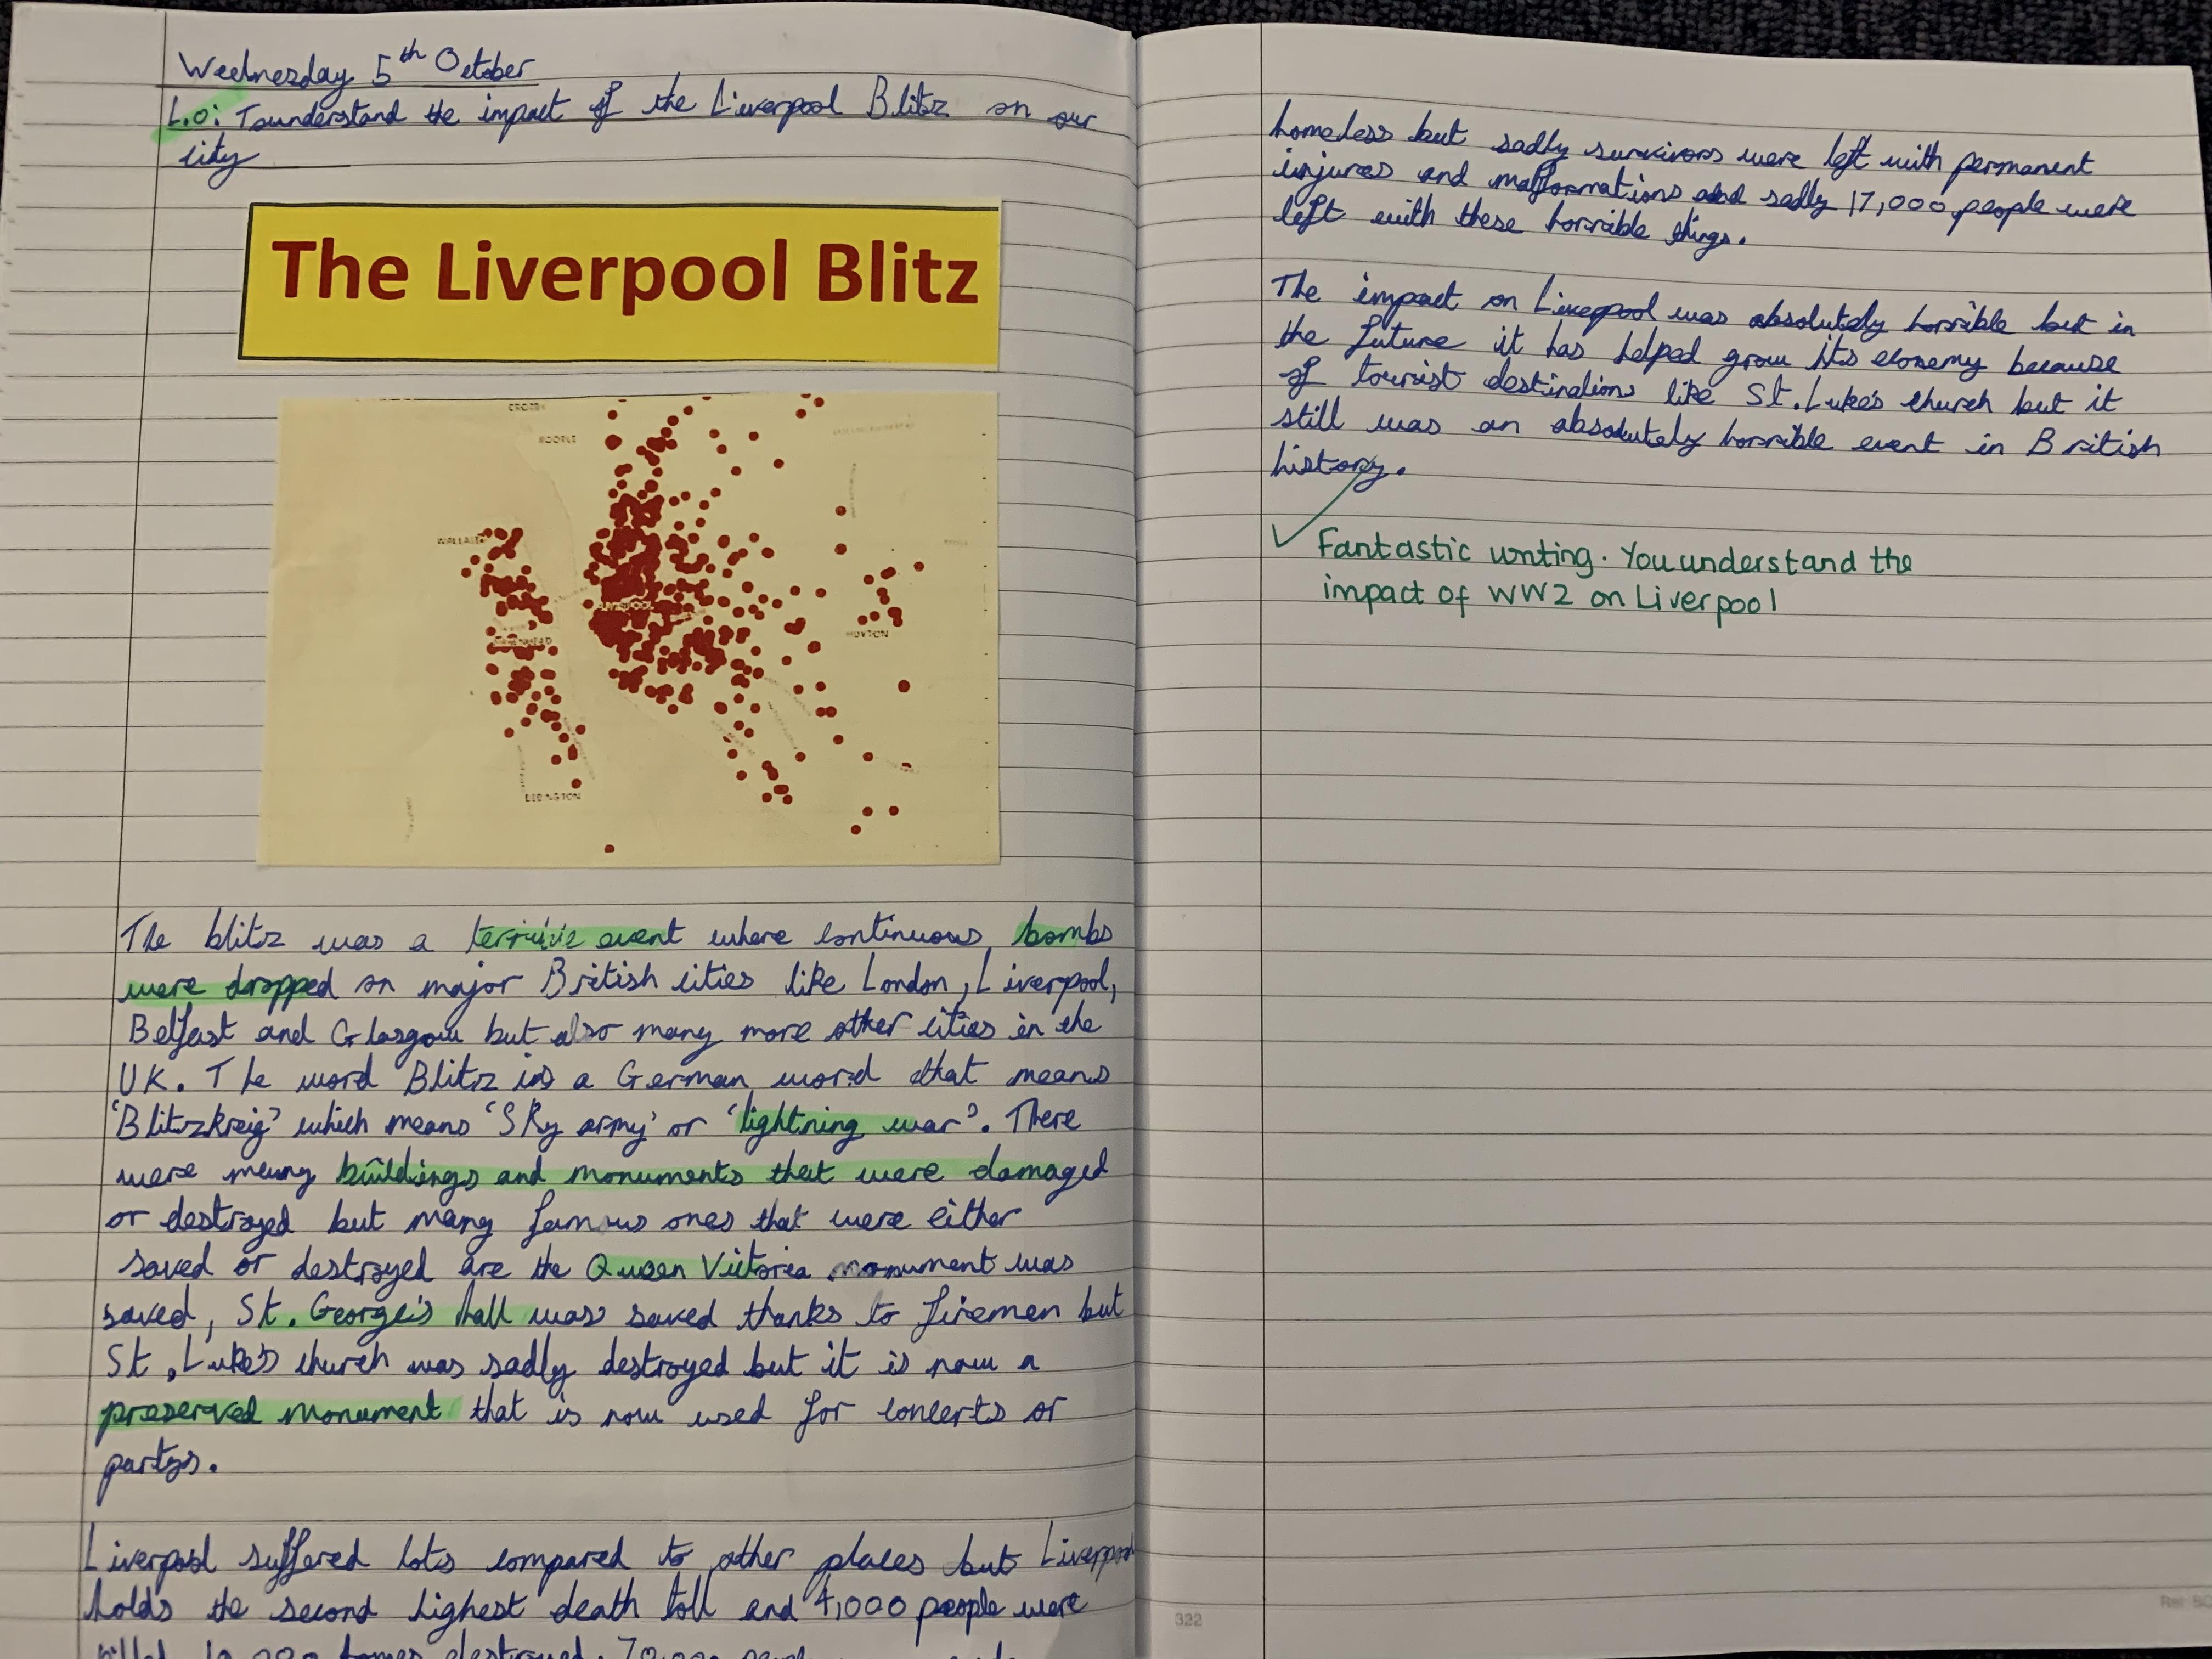 Wednesday 5th October
L.O: To understand the impact of the Liverpool Blitz on our
city
The Liverpool Blitz
CROSBY
BOOTLE
WALLASEY
HUYTON
BEBINGTON
The blitz was a terrible event where continuous bombs
were dropped on major British cities like London, Liverpool,
Belfast and Glasgow but also many more other cities in the
UK. The word Blitz is a German word that means
'Blitzkreig' which means 'Sky army' or 'lightning war'. There
were many buildings and monuments that were damaged
or destroyed but many famous ones that were either
saved or destroyed are the Queen Victoria monument was
saved, St. George's hall was saved thanks to firemen but
St. Luke's church was sadly destroyed but it is now a
preserved monument that is now used for concerts or
partys.
Liverpool suffered lots compared to other places but Liverpool
holds the second highest death toll and 4,000 people were
homes destroyed, 70,000
homeless but sadly survivors were left with permanent
injures and malformations and sadly 17,000 people were
left with these horrible things.
The impact on Liverpool was absolutely horrible but in
the future it has helped grow its economy because
of tourist destinations like St. Luke's church but it
still was an absolutely horrible event in British
history.
✓ Fantastic writing. You understand the
impact of WW2 on Liverpool
322